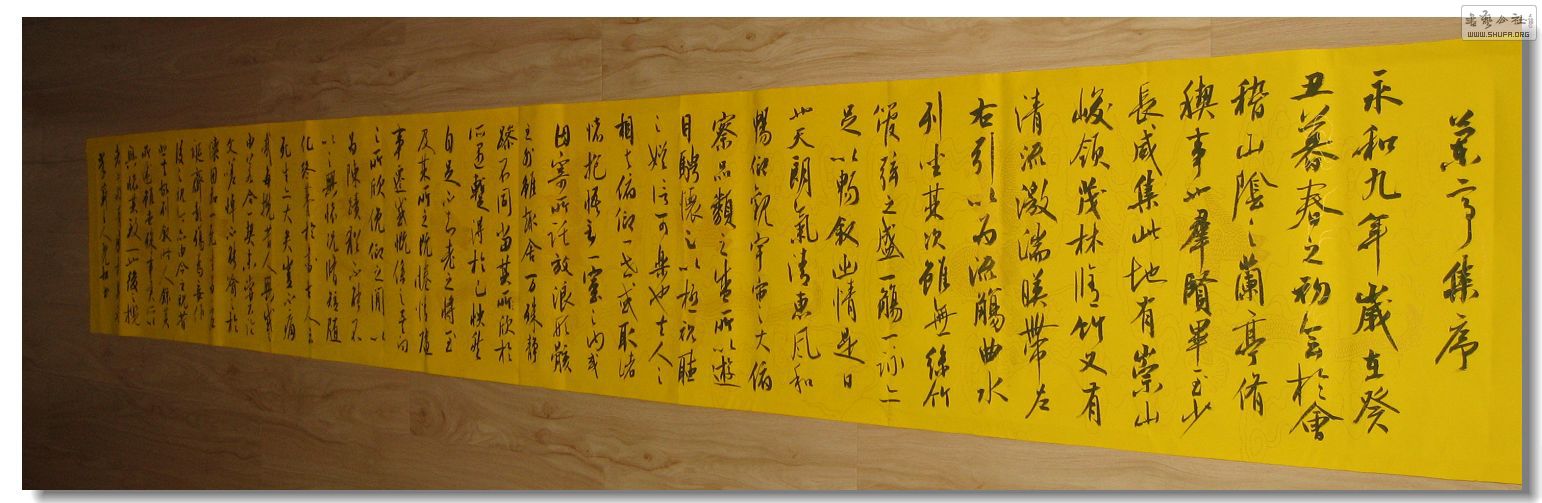 蘭亭集序
永和九年歲在癸
丑暮春之初會於會
稽山陰之蘭亭脩
禊事也群賢畢至少
長咸集此地有崇山
峻領茂林脩竹又有
清流激湍映帶左
右引以為流觴曲水
列坐其次雖無絲竹
管弦之盛一觴一詠亦
足以暢敘幽情是日
也天朗氣清惠風和
暢仰觀宇宙之大俯
察品類之盛所以遊
目騁懷足以極視聽
之娛信可樂也夫人之
相與俯仰一世或取諸
懷抱悟言一室之內或
因寄所託放浪形骸
之外雖趣舍万殊靜
躁不同當其所欣於
所遇暫得於己快然
自足不知老之將至
及其所之既惓情隨
事遷感慨係之矣向
之所欣俛仰之間以
為陳跡猶不能不
以之興懷況脩短隨
化終期於盡古人云
死生亦大矣豈不痛
哉每攬昔人興感
由若合一契未嘗不臨
文嗟悼不能喻於
懷固知一死生為虛
誕齊彭殤為妄作
後之視今亦由今之視昔
悲夫故列敘時人錄其
所述雖世殊事異所以
興懷其致一也後之攬
書藝公社
WWW.SHUFA.ORG